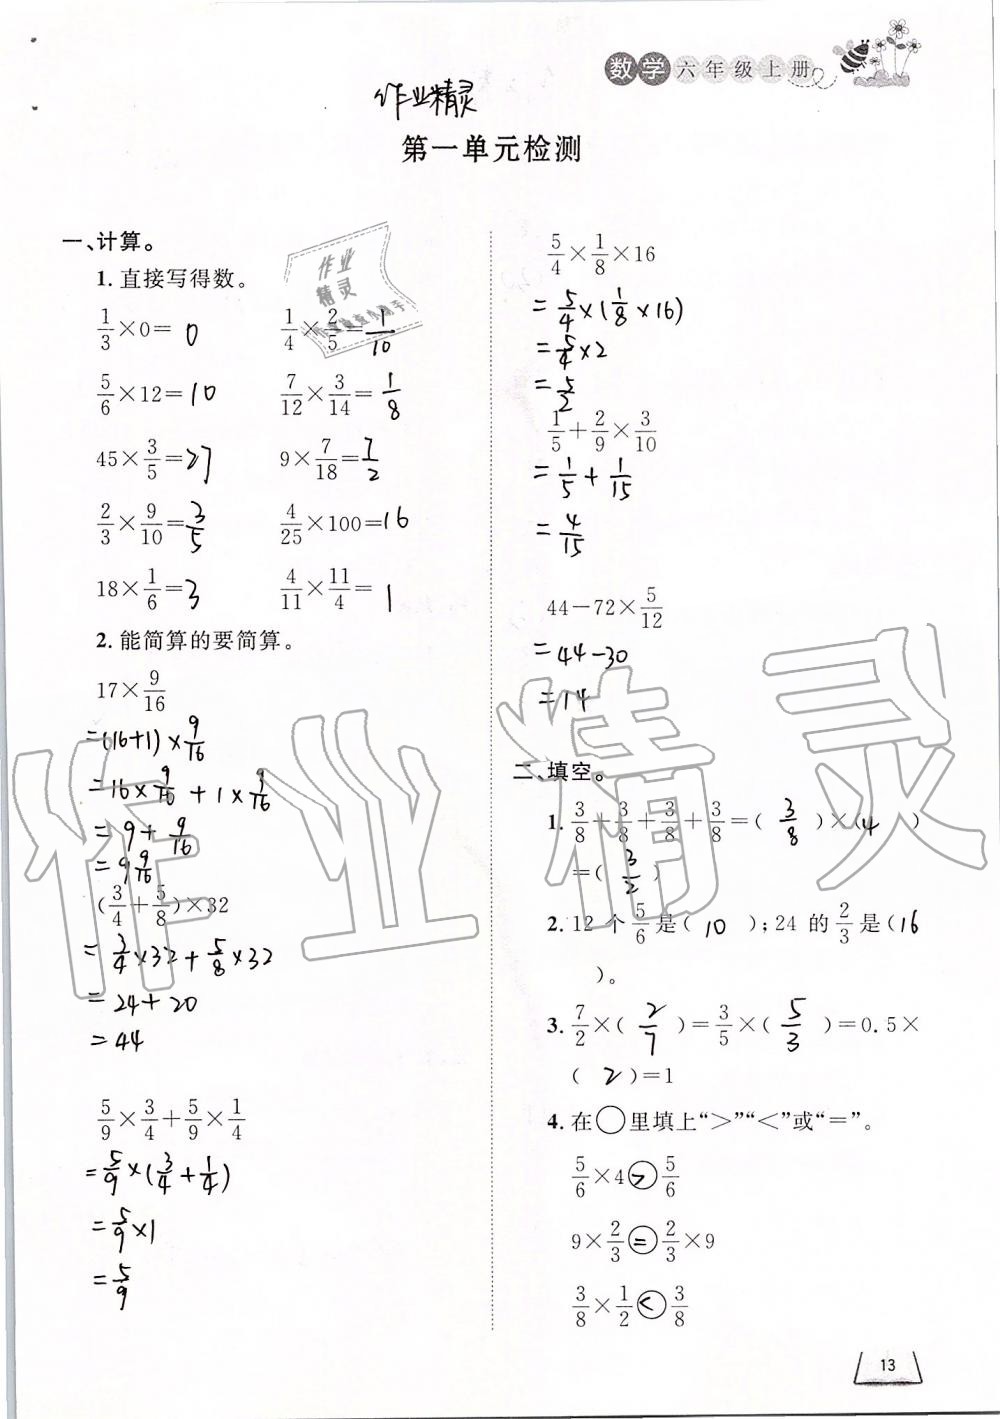 数学六年级上册
作业精灵
第一单元检测
一、计算。
1. 直接写得数。
1/3×0= 0    1/4×2/5= 1/10
5/6×12= 10    7/12×3/14= 1/8
45×3/5= 27    9×7/18= 7/2
2/3×9/10= 3/5    4/25×100= 16
18×1/6= 3    4/11×11/4= 1
2. 能简算的要简算。
17×9/16
=(16+1)×9/16
=16×9/16+1×9/16
=9+9/16
=9 9/16
(3/4+5/8)×32
=3/4×32+5/8×32
=24+20
=44
5/9×3/4+5/9×1/4
=5/9×(3/4+1/4)
=5/9×1
=5/9
5/4×1/8×16
=5/4×(1/8×16)
=5/4×2
=5/2
1/5+2/9×3/10
=1/5+1/15
=4/15
44-72×5/12
=44-30
=14
二、填空。
1. 3/8+3/8+3/8+3/8=( 3/8 )×( 4 )
=( 3/2 )
2. 12个5/6是( 10 );24的2/3是( 16
)。
3. 7/2×( 2/7 )=3/5×( 5/3 )=0.5×
( 2 )=1
4. 在○里填上“>”“<”或“=”。
5/6×4 > 5/6
9×2/3 = 2/3×9
3/8×1/2 < 3/8
13
作业
精灵
作业精灵